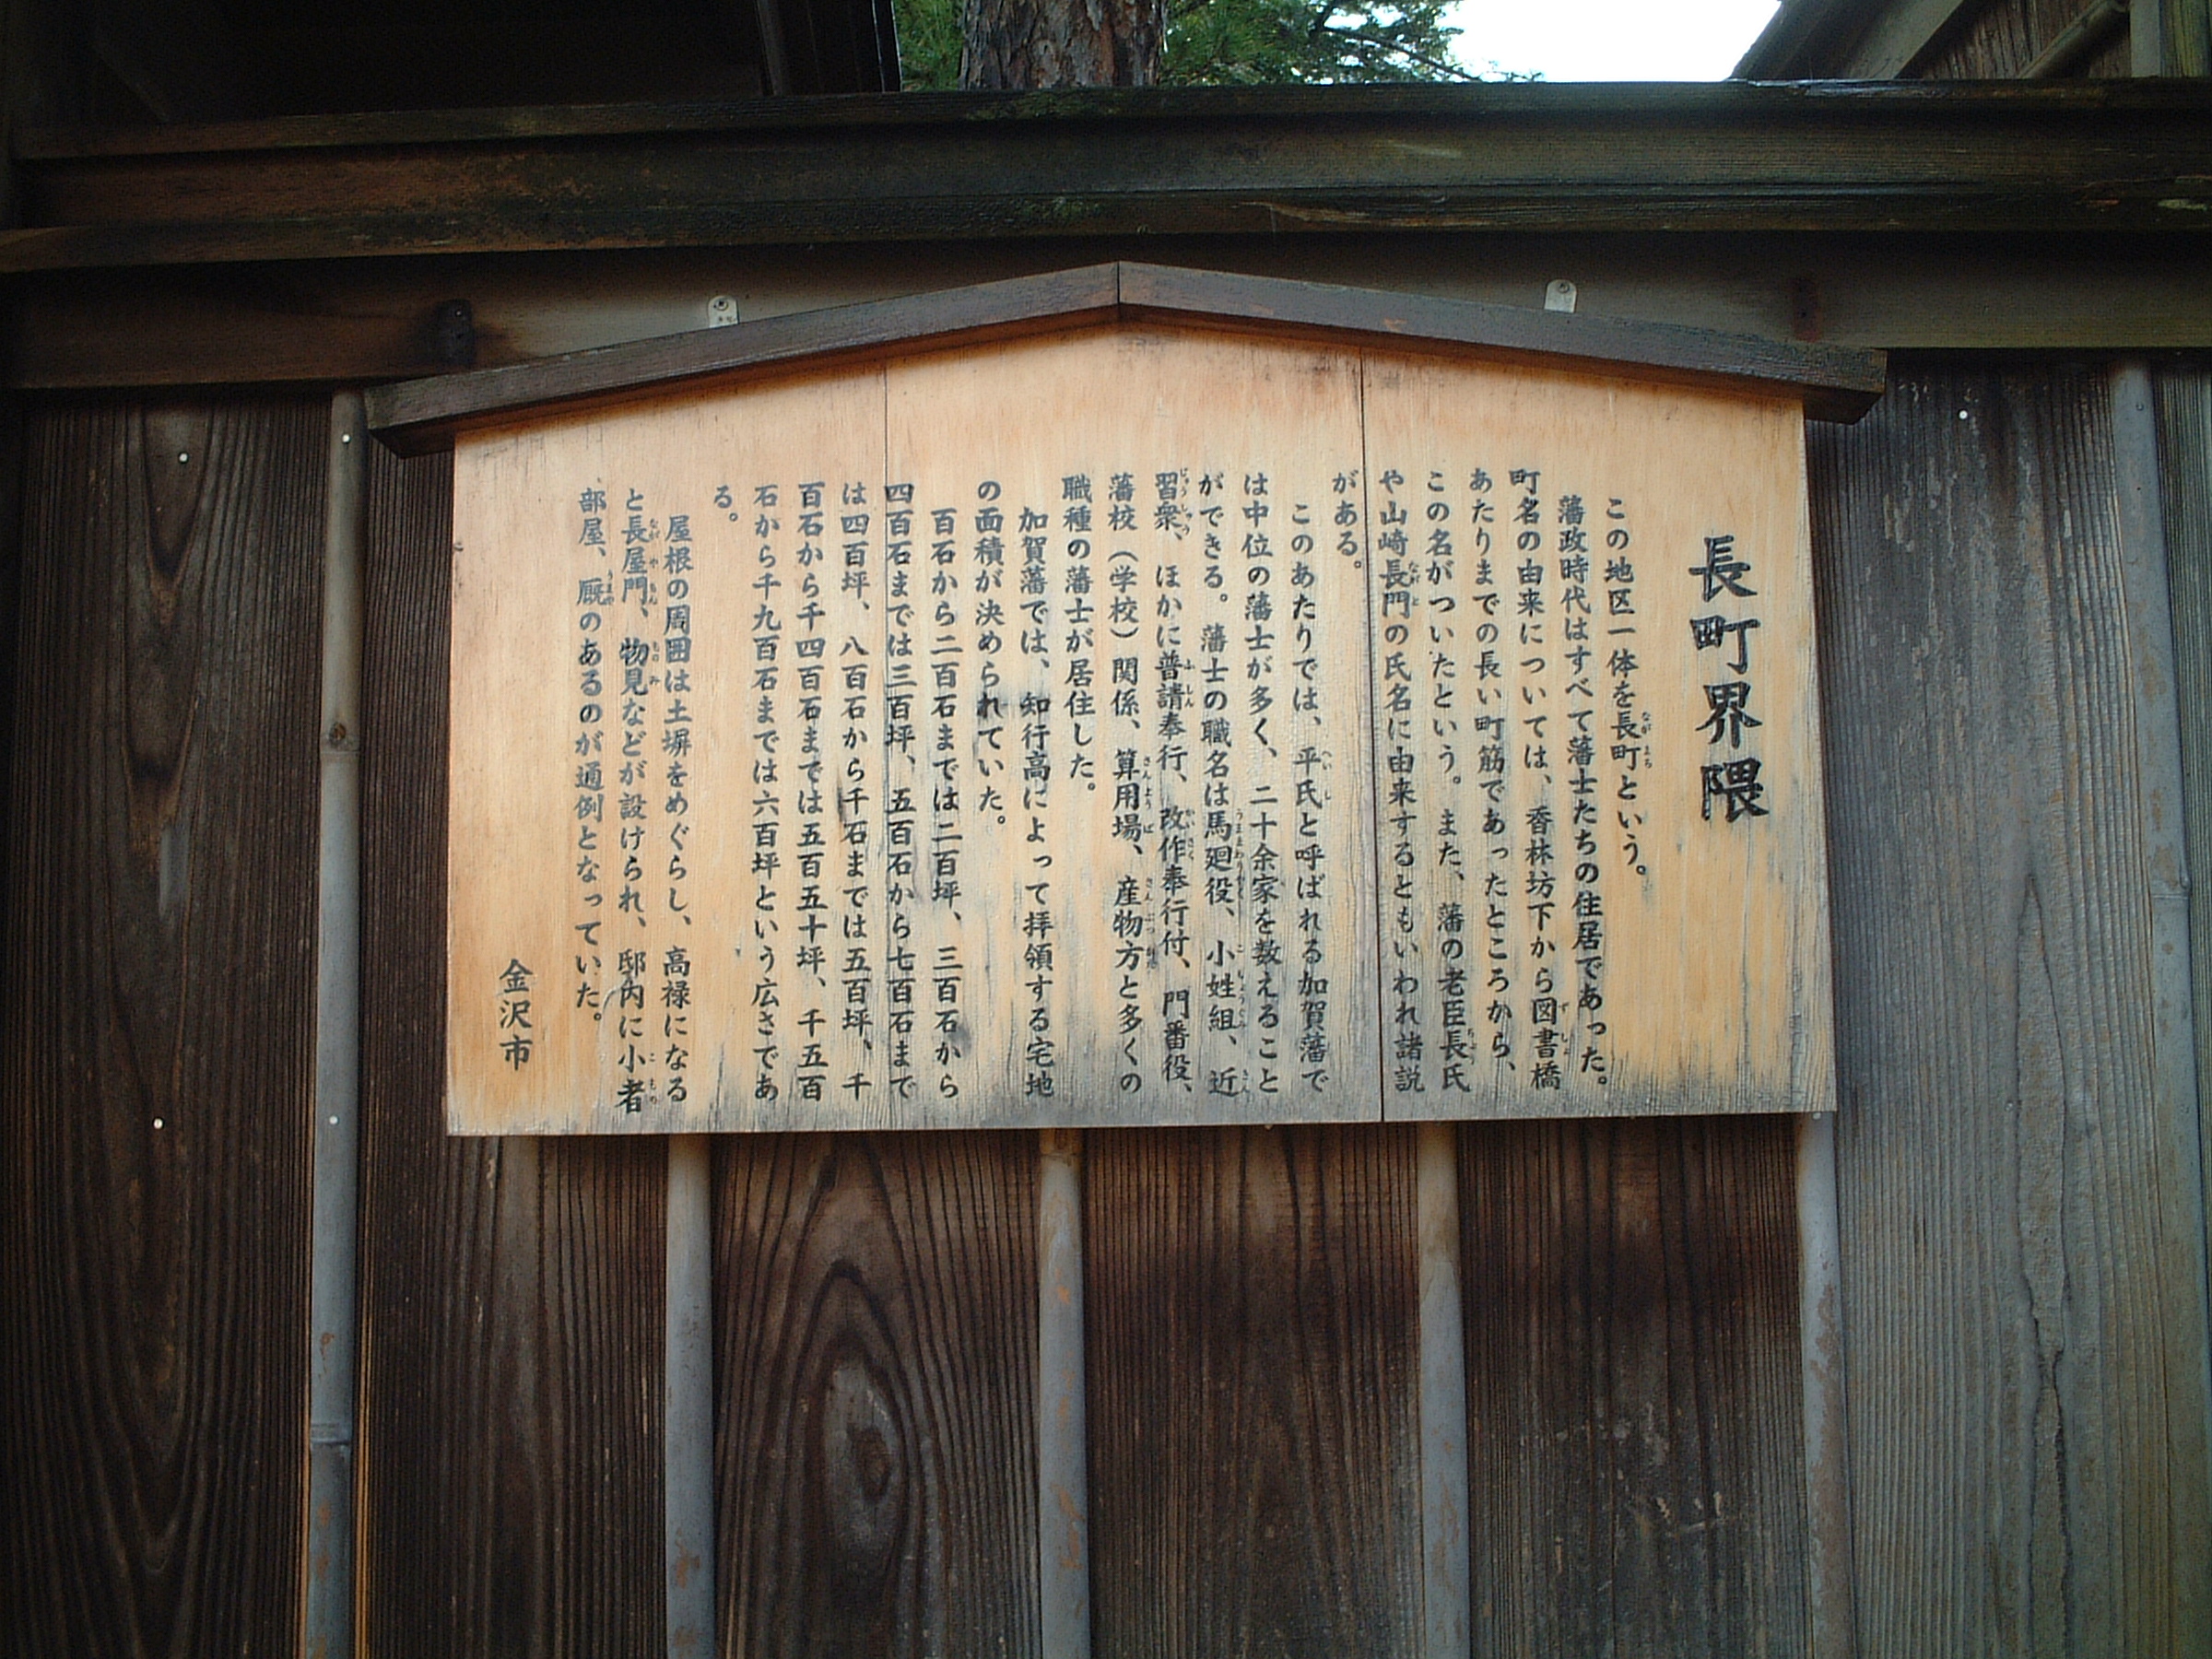 長町界隈
この地区一体を長町という。
藩政時代はすべて藩士たちの住居であった。
町名の由来については、香林坊下から図書橋
あたりまでの長い町筋であったところから、
この名がついたという。また、藩の老臣長氏
や山崎長門の氏名に由来するともいわれ諸説
がある。
このあたりでは、平氏と呼ばれる加賀藩で
は中位の藩士が多く、二十余家を数えること
ができる。藩士の職名は馬廻役、小姓組、近
習衆、ほかに普請奉行、改作奉行付、門番役、
藩校（学校）関係、算用場、産物方と多くの
職種の藩士が居住した。
加賀藩では、知行高によって拝領する宅地
の面積が決められていた。
百石から二百石までは二百坪、三百石から
四百石までは三百坪、五百石から七百石まで
は四百坪、八百石から千石までは五百坪、千
百石から千四百石までは五百五十坪、千五百
石から千九百石までは六百坪という広さであ
る。
屋根の周囲は土塀をめぐらし、高禄になる
と長屋門、物見などが設けられ、邸内に小者
部屋、厩のあるのが通例となっていた。
金沢市